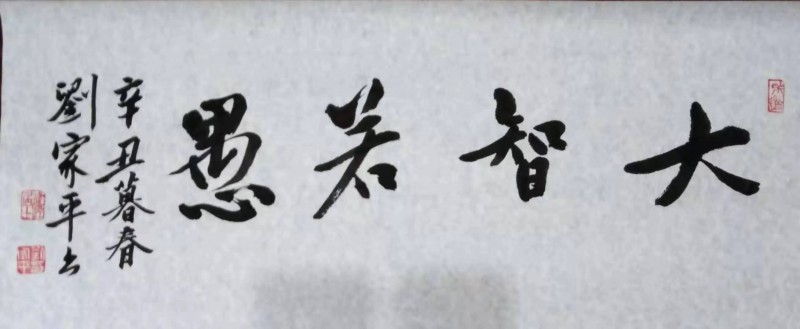 大智若愚
辛丑暮春
劉家平书